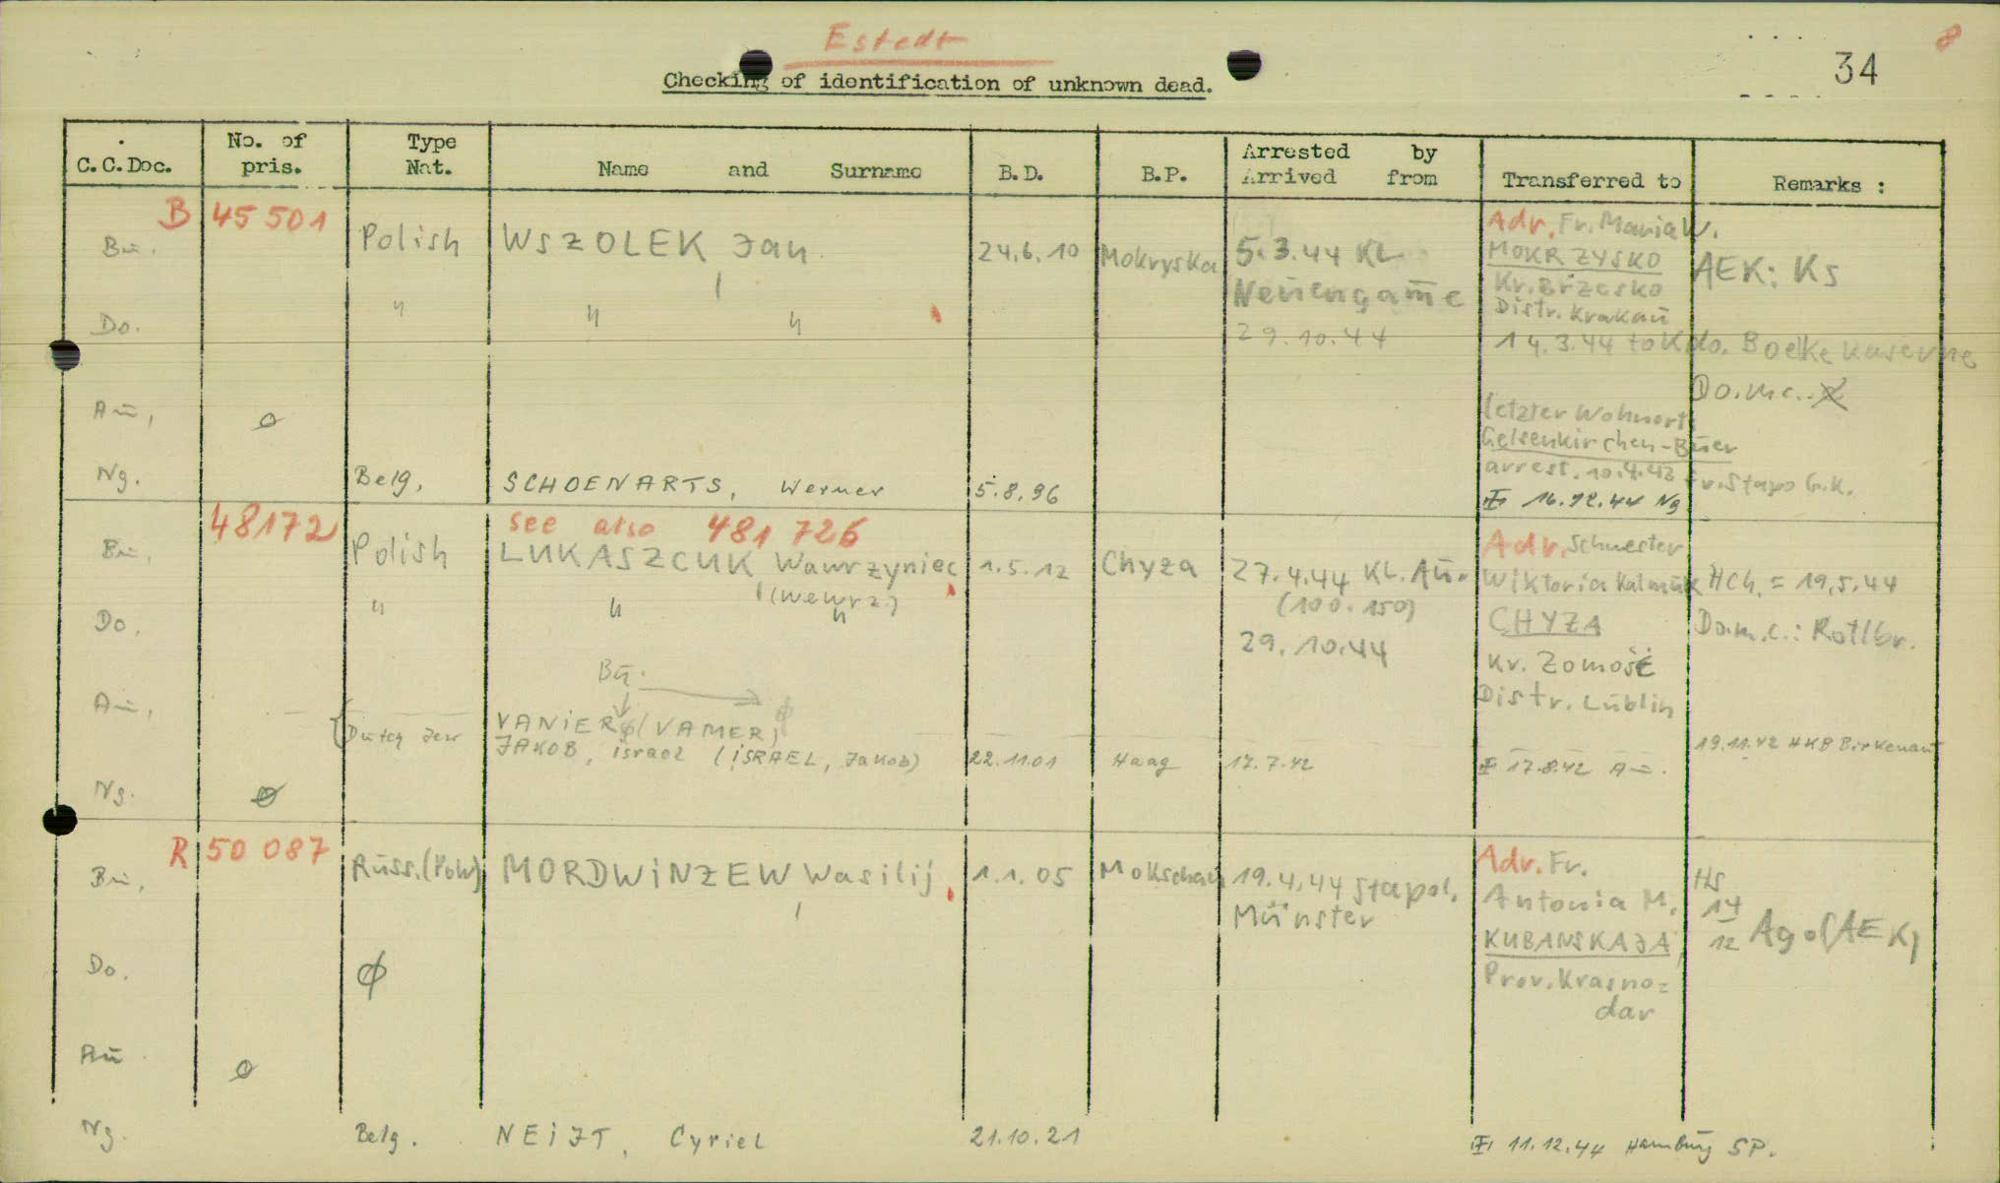 Estedt
8
34
Checking of identification of unknown dead.
C.C.Doc.
No. of pris.
Type Nat.
Name and Surname
B.D.
B.P.
Arrested by
Arrived from
Transferred to
Remarks :
B 45 501
Bu. Polish WSZOLEK Jan 24.6.10 Mokryska 5.3.44 KL Neuengamme
Adr. Fr. Maria W.
MOKRZYSKO
Kr. Brzesko
Distr. Krakau
AEK: KS
Do. " " " 29.10.44
14.3.44 to Kdo. Boelke Kaserne
Do.m.c..
Au,
letzter Wohnort
Gelsenkirchen-Buer
arrest. 10.4.43 Stapo G.K.
Ng. Belg. SCHOENARTS, Werner 5.8.96
16.12.44 Ng
48172
see also 481 726
Bu, Polish LUKASZCUK Wawrzyniec 1.5.12 Chyza 27.4.44 KL. Au.
(wewrz.)
(100.150)
Adr. Schwester
Wiktoria
CHYZA
Kr. Zomość
Distr. Lublin
HCh. = 19.5.44
Do.m.c.: Rotlbr.
Do. " " " 29.10.44
Bu.
Au,
Dutch Jew VANIER (VAMER)
JAKOB, israel (iSRAEL, Jakob) 22.11.01 Haag 17.7.42
17.8.42 Au.
19.11.42 HKB Birkenau
Ng.
R 50 087
Bu, Russ.(Pow) MORDWiNZEW Wasilij 1.1.05 Mokschan 19.4.44 Stapol.
Münster
Adr. Fr.
Antonia M.
KUBANSKAJA
Prov. Krasno=
dar
HS
14
12
Ago (AEK)
Do. ϕ
Au
Ng. Belg. NEiJT, Cyriel 21.10.21
11.12.44 Hamburg SP.